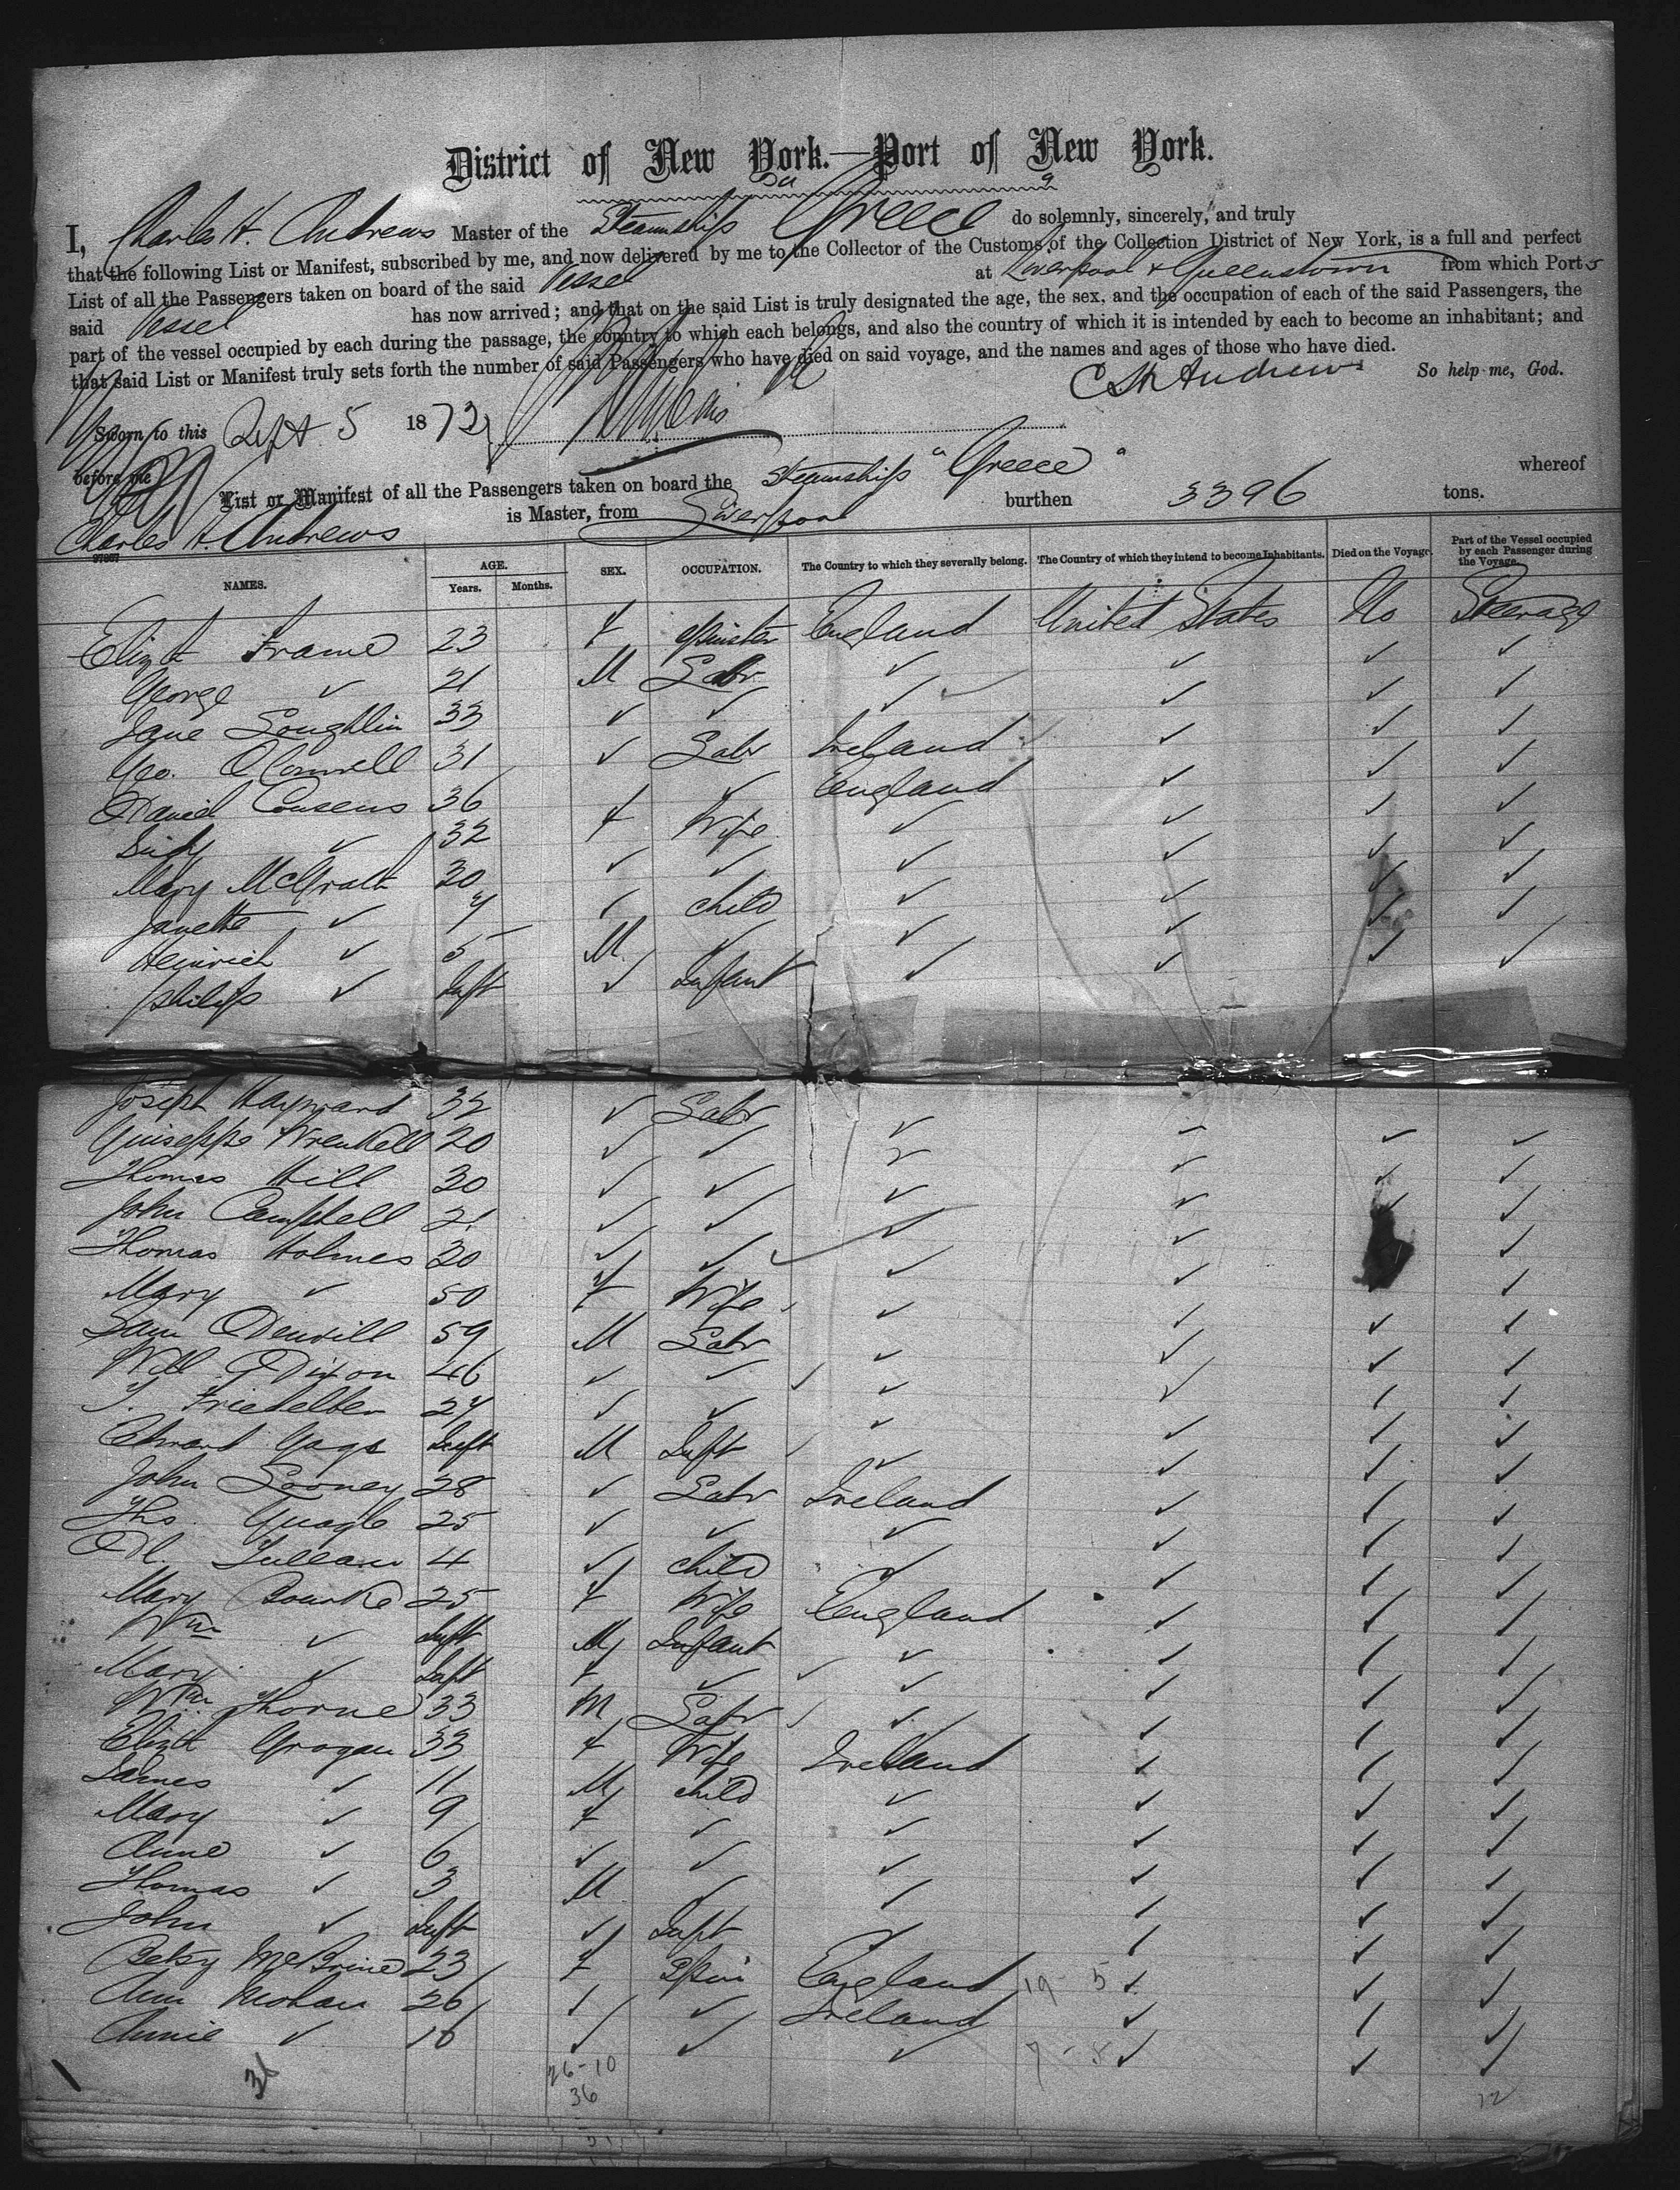 District of New York.—Port of New York.
I, Charles H. Andrews Master of the Steamship "Greece" do solemnly, sincerely, and truly
that the following List or Manifest, subscribed by me, and now delivered by me to the Collector of the Customs of the Collection District of New York, is a full and perfect
List of all the Passengers taken on board of the said Vessel at Liverpool & Queenstown from which Ports
said Vessel has now arrived; and that on the said List is truly designated the age, the sex, and the occupation of each of the said Passengers, the
part of the vessel occupied by each during the passage, the country to which each belongs, and also the country of which it is intended by each to become an inhabitant; and
that said List or Manifest truly sets forth the number of said Passengers who have died on said voyage, and the names and ages of those who have died.
C H Andrews So help me, God.
Sworn to this Sept 5 1873
before me
List or Manifest of all the Passengers taken on board the Steamship "Greece" whereof
Charles H. Andrews is Master, from Liverpool burthen 3396 tons.
97867
NAMES. AGE. Years. Months. SEX. OCCUPATION. The Country to which they severally belong. The Country of which they intend to become Inhabitants. Died on the Voyage. Part of the Vessel occupied by each Passenger during the Voyage.
Elizth Frame 23 F Spinster England United States No Steerage
George ✓ 21 M Labr ✓ ✓ ✓ ✓
Jane Loughlin 33 ✓ ✓ ✓ ✓ ✓ ✓
Geo. O'Connell 31 ✓ Labr Ireland ✓ ✓ ✓
Daniel Cousens 36 ✓ England ✓ ✓ ✓
✓ 32 F Wife ✓ ✓ ✓ ✓
Mary McGrath 30 ✓ ✓ ✓ ✓ ✓ ✓
Janette ✓ 7 ✓ Child ✓ ✓ ✓ ✓
Heinrich ✓ 5 M ✓ ✓ ✓ ✓ ✓
Philip ✓ Inft ✓ Infant ✓ ✓ ✓ ✓
Joseph Hayward 32 ✓ Labr ✓ ✓ ✓ ✓
Guiseppe 20 ✓ ✓ ✓ ✓ ✓ ✓
Thomas Hill 30 ✓ ✓ ✓ ✓ ✓ ✓
John Campbell 21 ✓ ✓ ✓ ✓ ✓
Thomas Holmes 30 ✓ ✓ ✓ ✓ ✓
Mary ✓ 50 F Wife ✓ ✓ ✓ ✓
Sam 59 M Labr ✓ ✓ ✓ ✓
Will Dixon 46 ✓ ✓ ✓ ✓ ✓ ✓
27 ✓ ✓ ✓ ✓ ✓ ✓
Edward Gage Inft M Inft ✓ ✓ ✓ ✓
John Looney 28 ✓ Labr Ireland ✓ ✓ ✓
Ths. Quagle 25 ✓ ✓ ✓ ✓ ✓ ✓
4 ✓ Child ✓ ✓ ✓ ✓
Mary Bourke 25 F Wife England ✓ ✓ ✓
Wm ✓ Inft M Infant ✓ ✓ ✓ ✓
Mary ✓ Inft F ✓ ✓ ✓ ✓ ✓
Wm Thorne 33 M Labr ✓ ✓ ✓ ✓
Elizth Grogan 33 F Wife Ireland ✓ ✓ ✓
James ✓ 11 M Child ✓ ✓ ✓ ✓
Mary ✓ 9 F ✓ ✓ ✓ ✓ ✓
Anne ✓ 6 ✓ ✓ ✓ ✓ ✓ ✓
Thomas ✓ 3 M ✓ ✓ ✓ ✓ ✓
John ✓ Inft ✓ Inft ✓ ✓ ✓ ✓
Betsy McBrine 23 F Spin England 19 5 ✓ ✓ ✓
Ann Mohan 26 ✓ ✓ Ireland ✓ ✓ ✓
Annie ✓ 18 ✓ ✓ ✓ 7 - 5 ✓ ✓ ✓
36 26-10 12
36